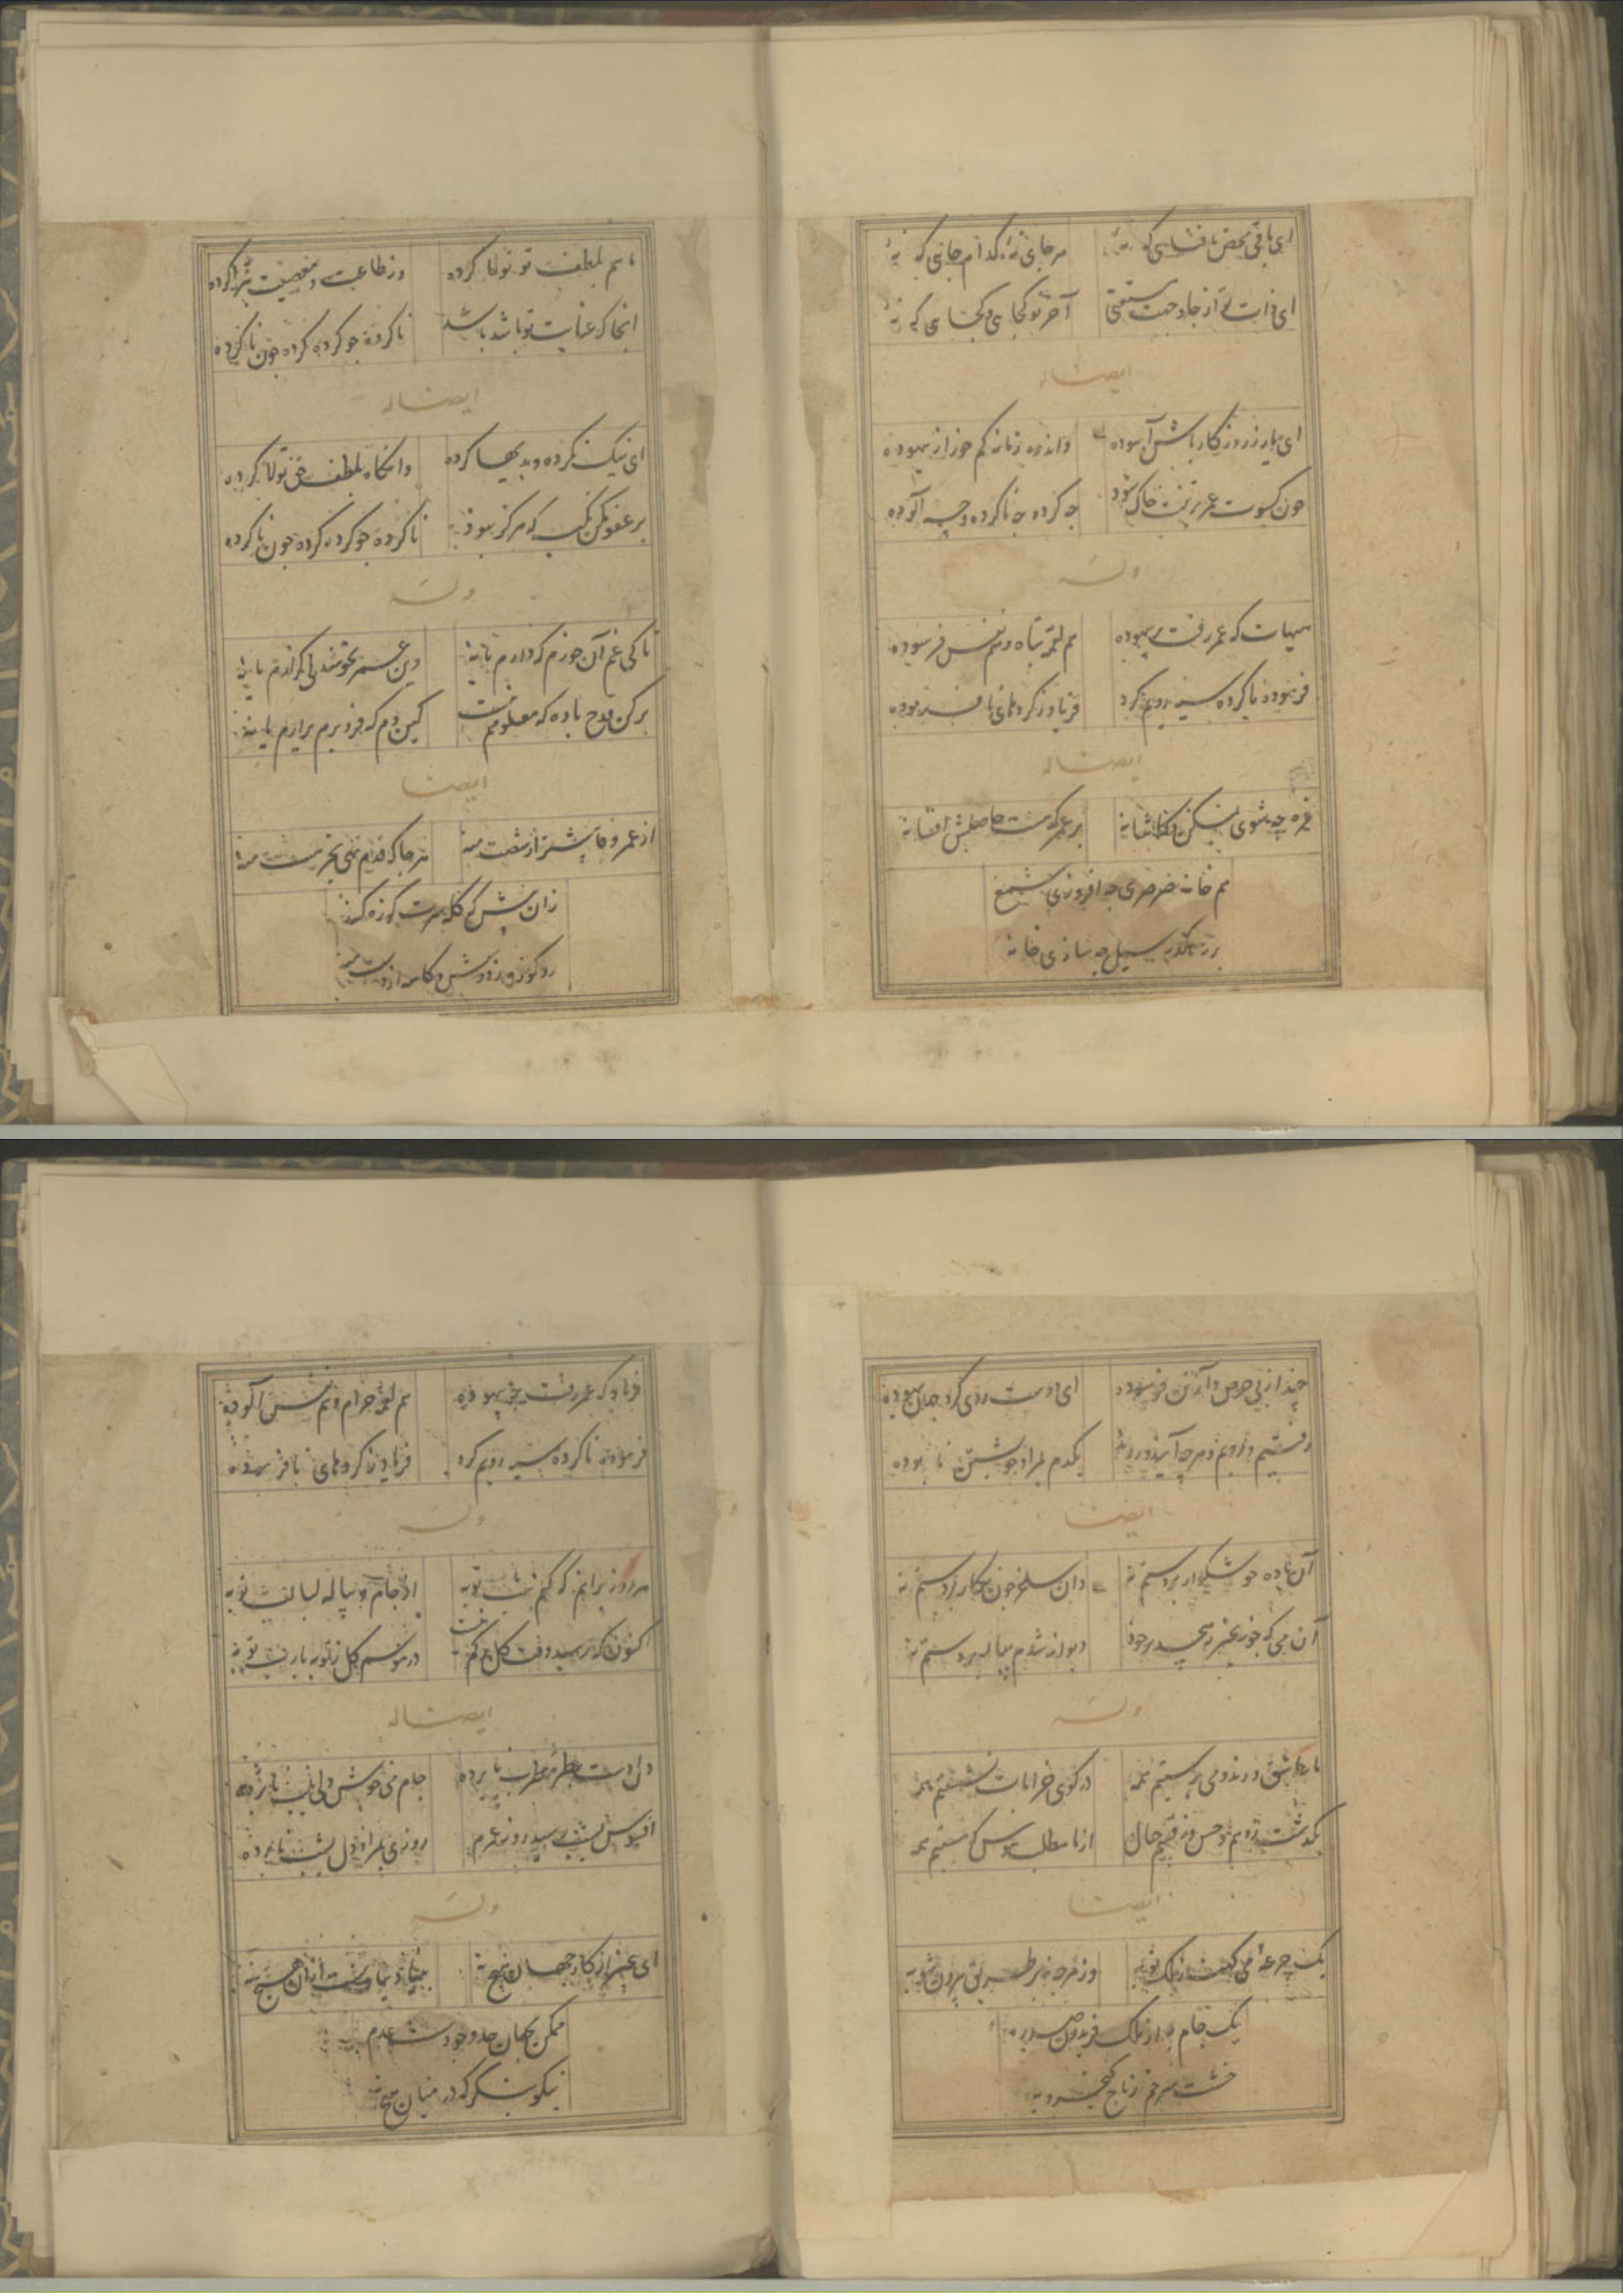 ای باقی محض با فنایی که نهٔ هر جای نهٔ کدام جایی که نهٔ
ای ذات تو از جا و جهت مستغنی آخر تو کجایی و کجایی که نهٔ
ایضاله
ای یار ز روزکار باش آسوده واندوه زمانه کم خور از بیهوده
چون کسوت عمر بر تنت چاک شود چه کرده چه ناکرده و چه آلوده
وله
هیهات که عمر رفت بر بیهوده هم لقمه تباه و هم نفس فرسوده
فرموده ناکرده سیه رویم کرد فریاد ز کردهای نافرموده
ایضاله
غره چه شوی بمسکن و کاشانه بر عمر که هست حاصلش افسانه
هم خانه صرصری چه افروزی شمع
بر رهگذر سیل چه سازی خانه
ماییم بلطف تو تولا کرده وز طاعت و معصیت تبرا کرده
انجا که عنایت تو باشد باشد ناکرده چو کرده کرده چون ناکرده
ایضاله
ای نیک نکرده و بدیها کرده وانکاه بلطف حق تولا کرده
بر عفو مکن تکیه که هرکز نبود ناکرده چو کرده کرده چون ناکرده
وله
تا کی غم آن خورم که دارم یا نه وین عمر بخوشدلی کذارم یا نه
پر کن قدح باده که معلومم نیست کین دم که فرو برم برارم یا نه
ایضا
از عمر وفا پیشتر از شصت منه هر جا که قدم نهی بجز مست منه
زان پیش که کله سرت کوزه کنند
رو کوزه ز دوش و کاسه از دست منه
چند از پی حرص و آز تن فرسوده ای دوست روی کرد جهان بیهوده
رفتیم و رویم و هر چه آیند و روند یکدم بمراد خویشتن نابوده
ایضا
آن باده خوشکوار بر دستم نه وان ساغر چون نکار بر دستم نه
آن می که چو زنجیر بپیچد بر خود دیوانه شدم بیار بر دستم نه
وله
ما عاشق و رند و می پرستیم همه در کوی خرابات نشستیم همه
بکذشت ز وهم و حس و فهم حال از ما مطلب هوش که مستیم همه
ایضا
یک جرعه می کهنه ز ملک نو به وز هر چه نه می طریق بیرون شو به
یک جام به از ملک فریدون صد ره
خشت سر خم ز تاج کیخسرو به
فریاد که عمر رفت بر بیهوده هم لقمه حرام و هم نفس آلوده
فرموده ناکرده سیه رویم کرد فریاد ز کردهای نافرموده
وله
هر روز برانم که کنم شب توبه از جام و پیاله لبالب توبه
اکنون که رسید وقت کل در موسم کل ز توبه یا رب توبه
ایضاله
دل دست بطره طرب نابرده جام می خوش دلی بلب نابرده
افسوس بشب رسید روز عمرم روزی بمراد دل بشب نابرده
وله
ای بیخبر از کار جهان هیچ نه بنیاد تو باد است ازان هیچ نه
ممکن بجهان حد وجودست و عدم
نیکو بنکر که در میان هیچ نه